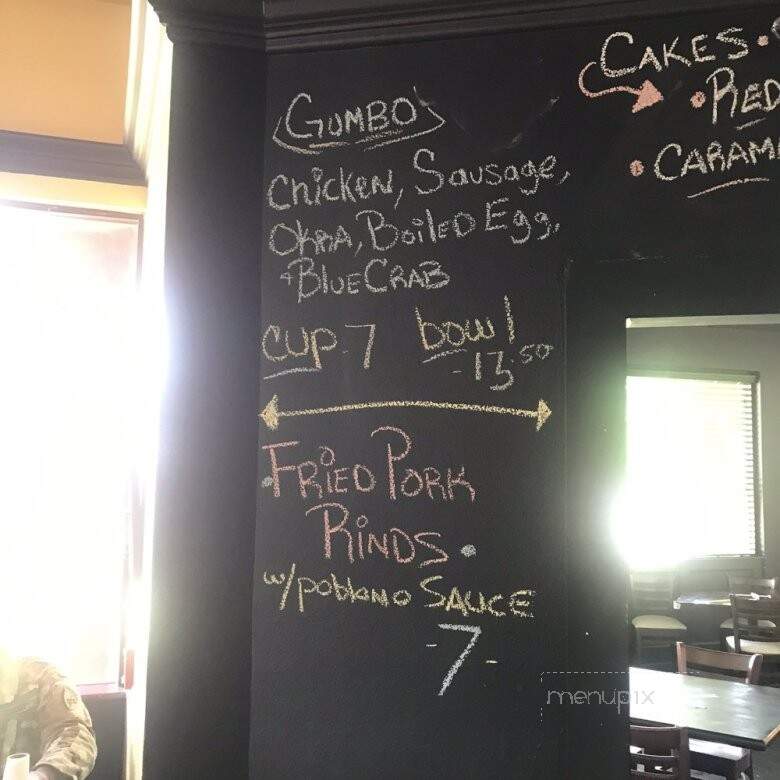 GUMBO
Chicken, Sausage,
OKRA, Boiled Egg,
+ Blue CRAB
cup-7 bowl
-13.50
FRIED PORK
RINDS.
w/poblano SAUCE
-7-
CAKES •
• RED
• CARAM
menupix